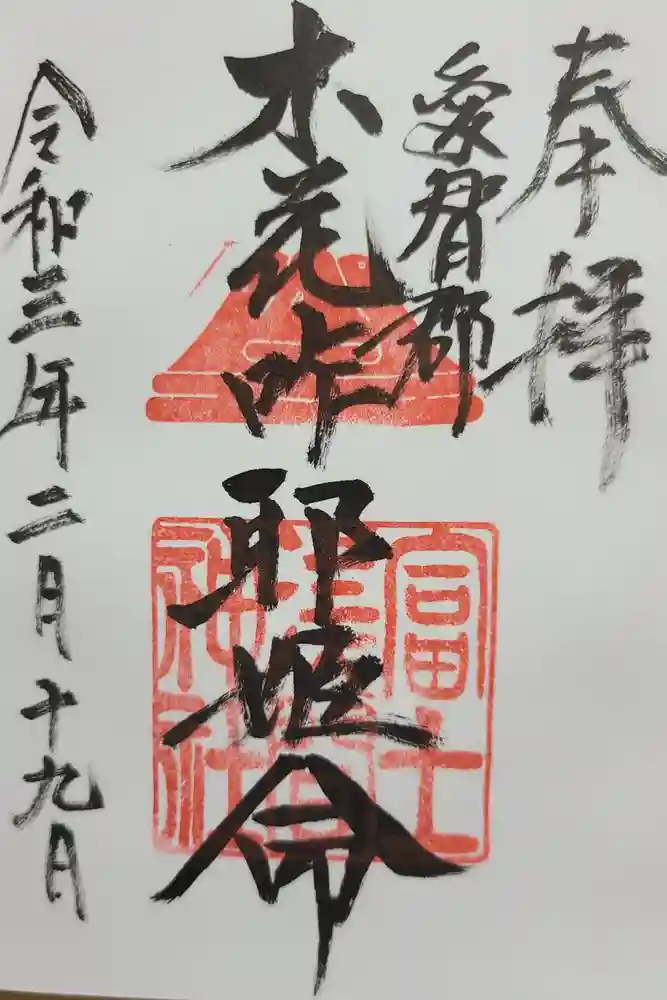 奉拝
愛智郡
木花咲耶姫命
令和三年二月十九日
富士
神社